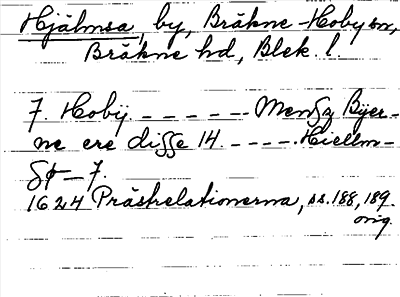 Hjälmsa, by, Bräkne-Hoby sn,
Bräkne hd, Blek. l.
7. Hobÿ. _ _ _ _ _ _ Mensz Bÿer-
ne ere disse 14. _ _ _ _ . Hiellm-
1624 Prästrelationerna, ss. 188, 189.
orig.